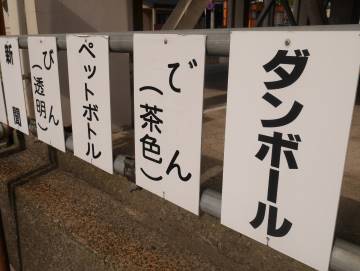 ダンボール
でん
(茶色)
ペットボトル
びん
(透明)
新聞